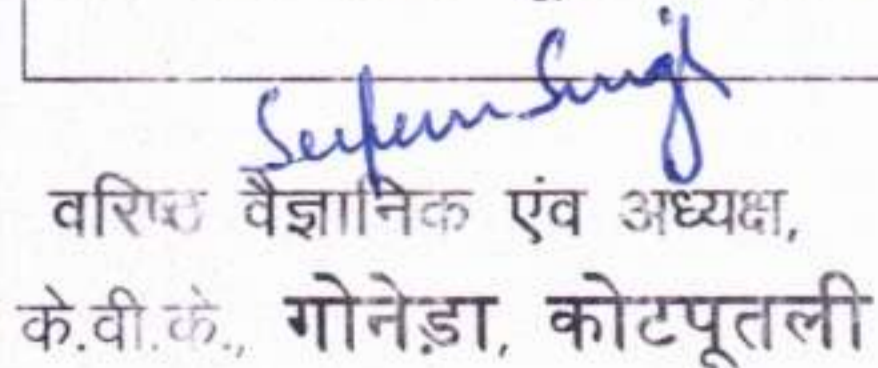 Singh
वरिष्ठ वैज्ञानिक एंव अध्यक्ष,
के.वी.के., गोनेड़ा, कोटपूतली